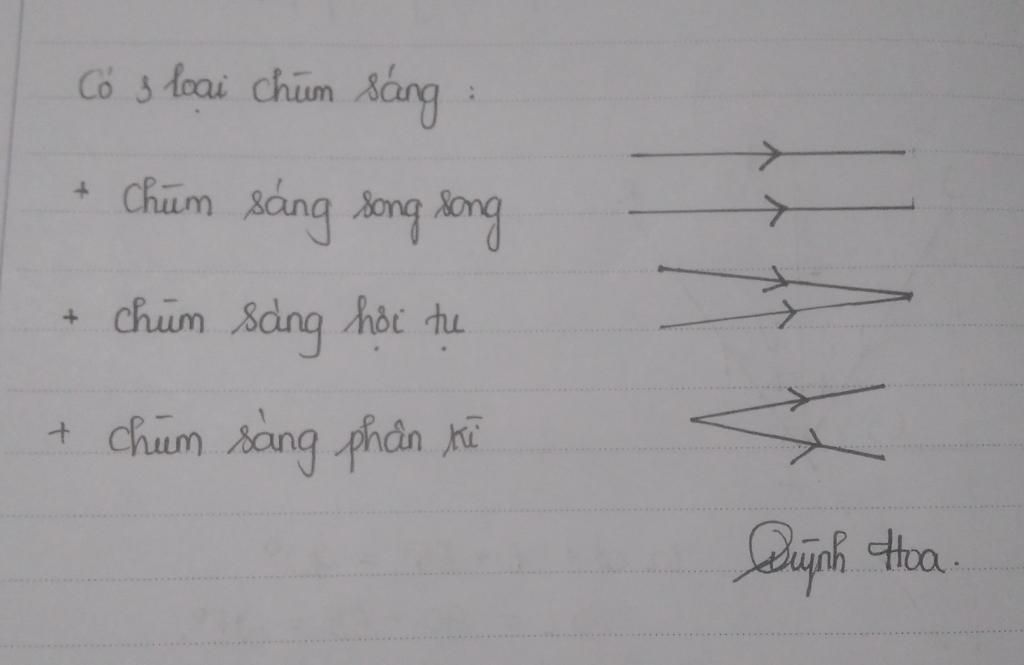 Có 3 loại chùm sáng :
+ chùm sáng song song
+ chùm sáng hội tụ
+ chùm sáng phân kì
Quỳnh Hoa.